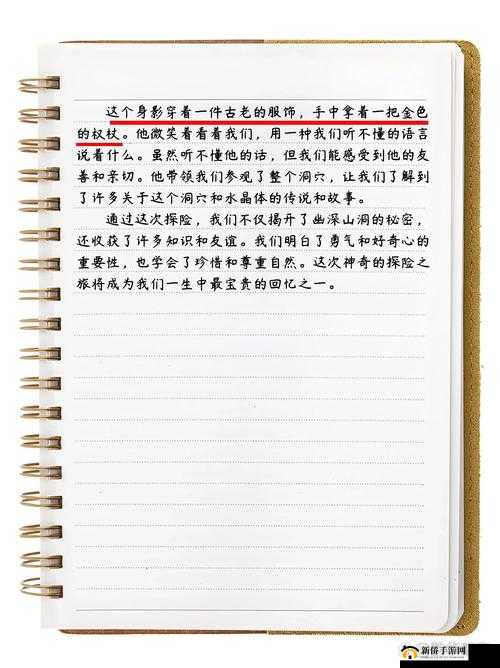 这个身影穿着一件古老的服饰，手中拿着一把金色
的权杖。他微笑着看着我们，用一种我们听不懂的语言
说着什么。虽然听不懂他的话，但我们能感受到他的友
善和亲切。他带领我们参观了整个洞穴，让我们了解到
了许多关于这个洞穴和水晶体的传说和故事。
通过这次探险，我们不仅揭开了幽深山洞的秘密，
还收获了许多知识和友谊。我们明白了勇气和好奇心的
重要性，也学会了珍惜和尊重自然。这次神奇的探险之
旅将成为我们一生中最宝贵的回忆之一。
新侨手游网